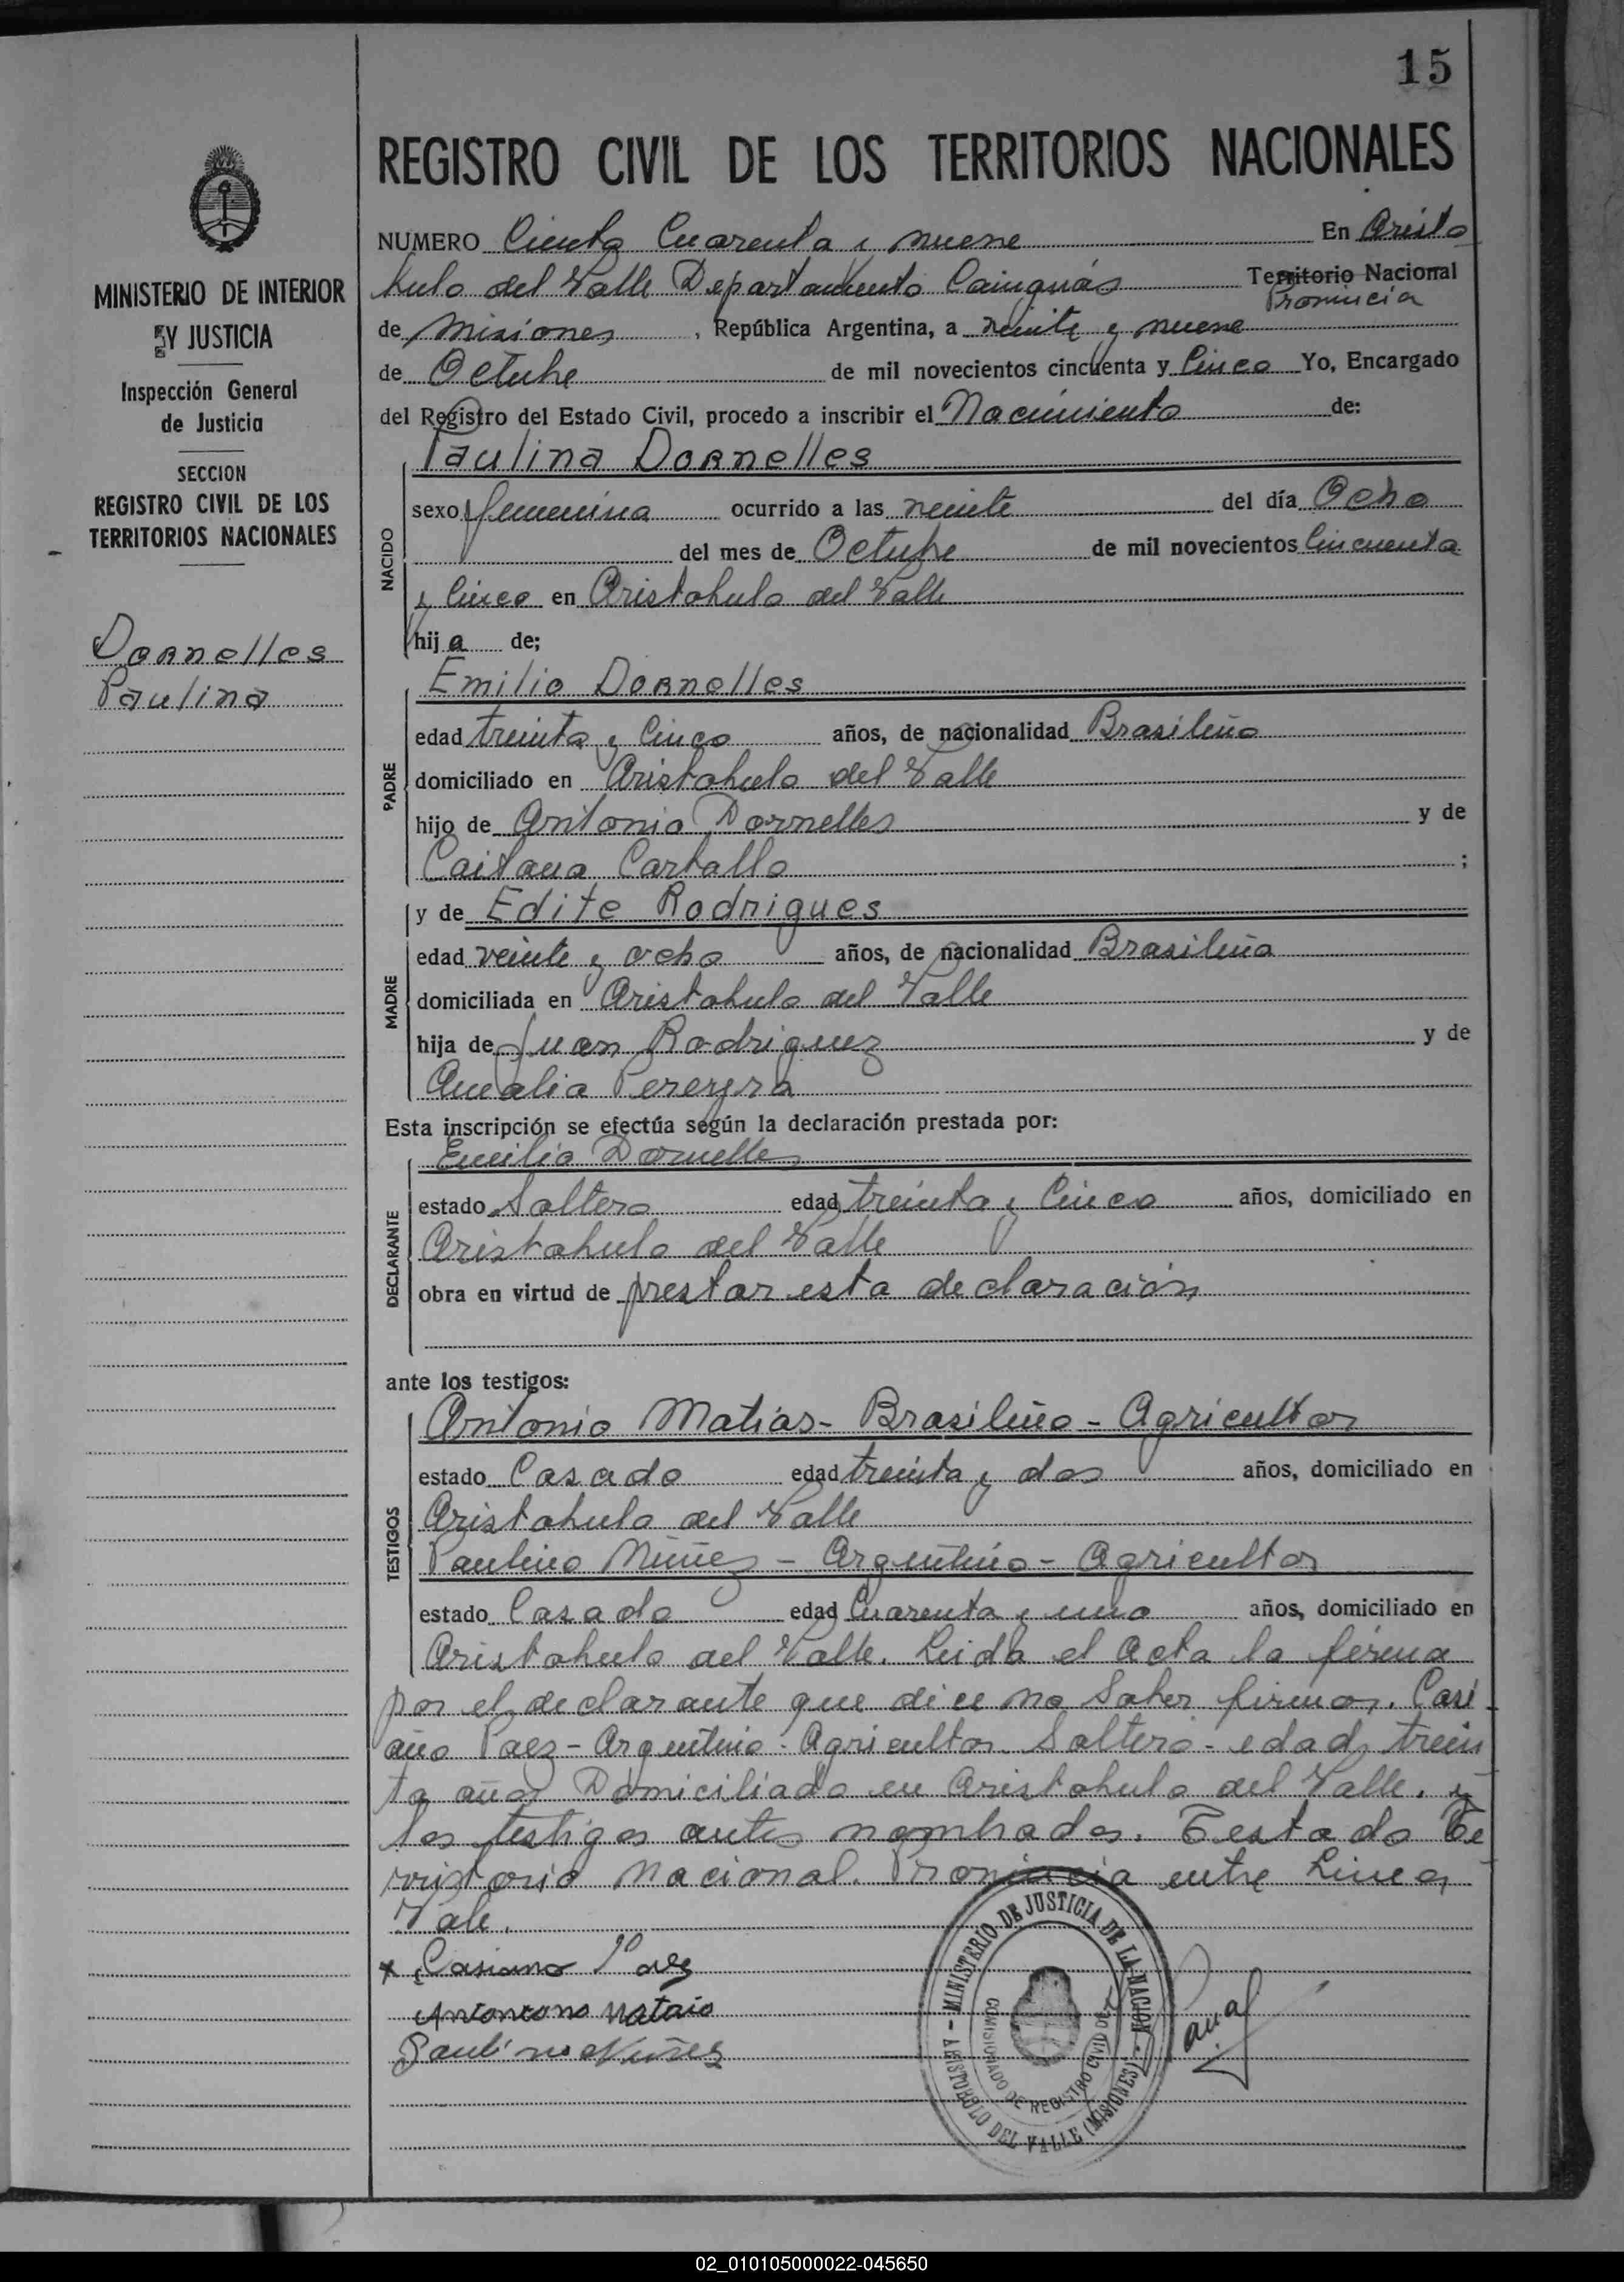 15
REGISTRO CIVIL DE LOS TERRITORIOS NACIONALES
MINISTERIO DE INTERIOR
Y JUSTICIA
Inspección General
de Justicia
SECCION
REGISTRO CIVIL DE LOS
TERRITORIOS NACIONALES
Dornelles
Paulina
NUMERO Ciento Cuarenta y nueve En Aristo
bulo del Valle Departamento Cainguás Territorio Nacional
Provincia
de Misiones, República Argentina, a veinte y nueve
de Octubre de mil novecientos cincuenta y Cinco Yo, Encargado
del Registro del Estado Civil, procedo a inscribir el Nacimiento de:
Paulina Dornelles
NACIDO
sexo femenina ocurrido a las veinte del día Ocho
del mes de Octubre de mil novecientos Cincuenta
y Cinco en Aristobulo del Valle
hija de;
Emilio Dornelles
PADRE
edad treinta y Cinco años, de nacionalidad Brasileño
domiciliado en Aristobulo del Valle
hijo de Antonio Dornelles y de
Caitana Carballo ;
y de Edite Rodrigues
MADRE
edad veinte y ocho años, de nacionalidad Brasileña
domiciliada en Aristobulo del Valle
hija de Juan Rodriguez y de
Amalia Pereyra
Esta inscripción se efectúa según la declaración prestada por:
Emilio Dornelles
DECLARANTE
estado Soltero edad treinta y Cinco años, domiciliado en
Aristobulo del Valle
obra en virtud de prestar esta declaración
ante los testigos:
Antonio Matias - Brasileño - Agricultor
TESTIGOS
estado Casado edad treinta y dos años, domiciliado en
Aristobulo del Valle
Paulino Núñez - Argentino - Agricultor
estado Casado edad Cuarenta y uno años, domiciliado en
Aristobulo del Valle. Leida el Acta la firma
por el declarante que dice no Saber firmar. Casi
ano Paez - Argentino - Agricultor Soltero - edad trein
ta años Domiciliado en Aristobulo del Valle. y
los testigos antes nombrados. Testado Te
rritorio Nacional. Provincia entre Lineas
Vale.
x Casiano Paez
Paulino Núñez
MINISTERIO DE JUSTICIA DE LA NACION
ARISTOBULO DEL VALLE (MISIONES)
COMISIONADO DE REGISTRO CIVIL DE
02_010105000022-045650